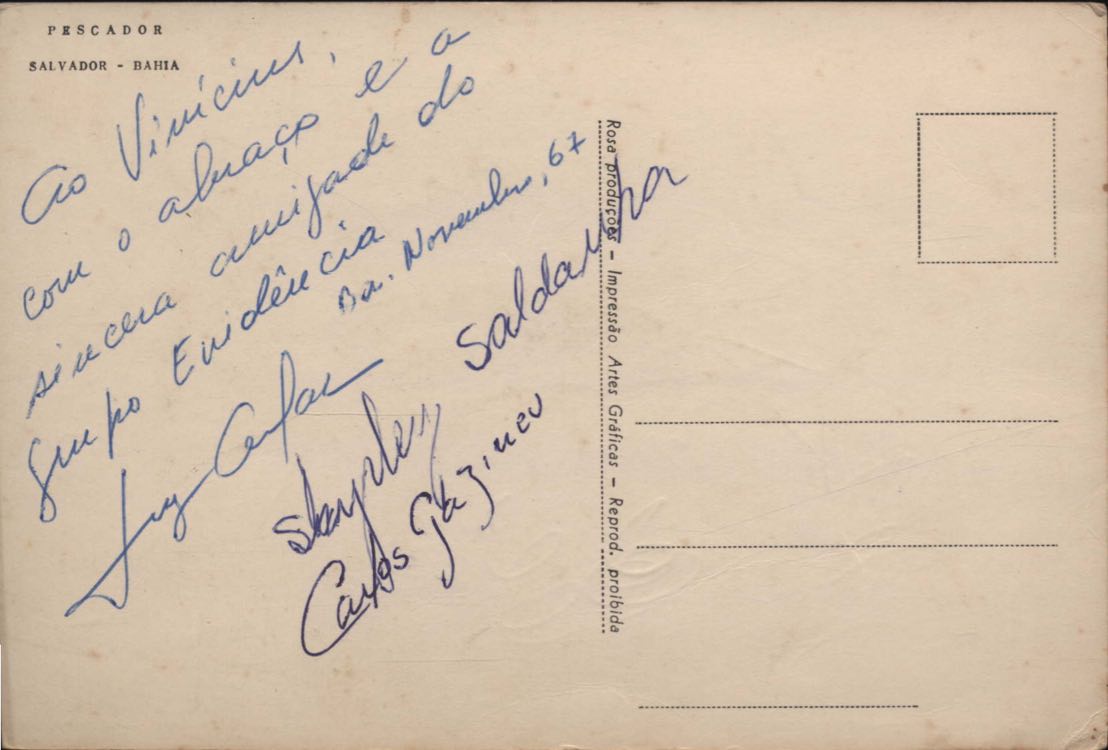 PESCADOR
SALVADOR - BAHIA
Ao Vinícius,
com o abraço e a
sincera amizade do
Grupo Evidência
Ba. Novembro, 67
Saldanha
Carlos Gazineu
Rosa produções - Impressão Artes Gráficas - Reprod. proibida